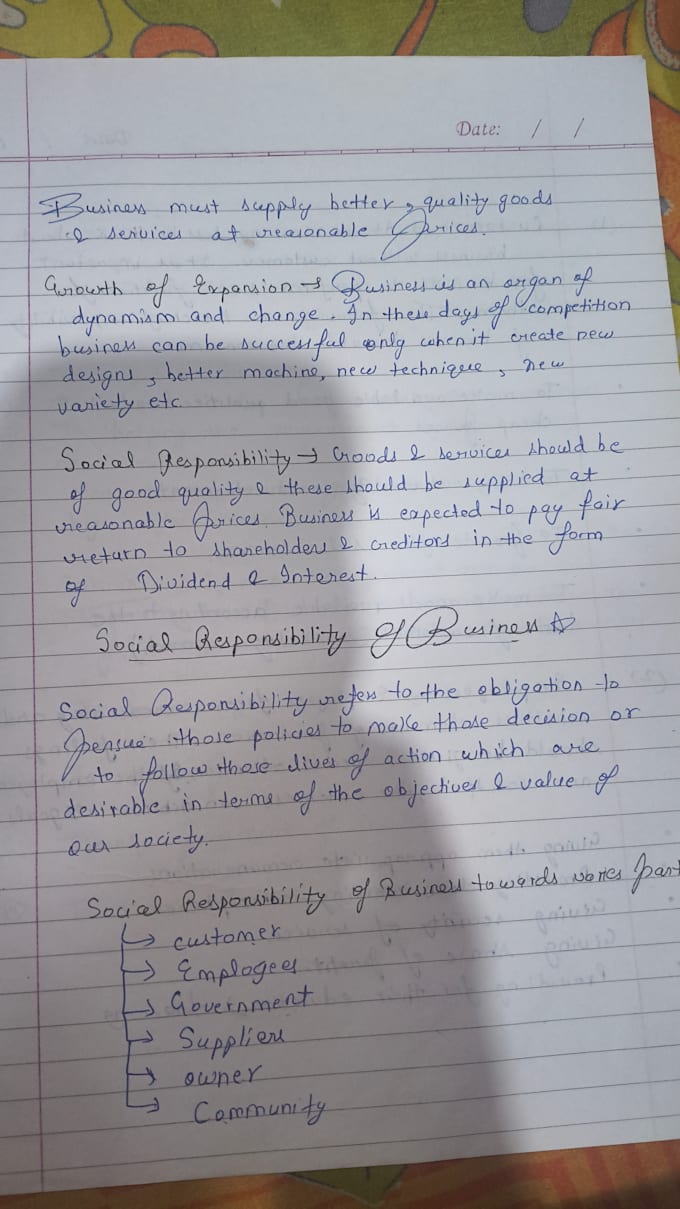 Date: / /
Business must supply better, quality goods
& services at reasonable prices.
Growth of Expansion → Business is an organ of
dynamism and change. In these days of competition
business can be successful only when it create new
designs, better machine, new technique, new
variety etc
Social Responsibility → Goods & services should be
of good quality & these should be supplied at
reasonable prices. Business is expected to pay fair
return to shareholders & creditors in the form
of Dividend & Interest.
Social Responsibility of Business
Social Responsibility refers to the obligation to
pensue those policies to make those decision or
to follow those lives of action which are
desirable in terms of the objectives & value of
our society.
Social Responsibility of Business towards part
→ customer
→ Employees
→ Government
→ Suppliers
→ owner
→ Community